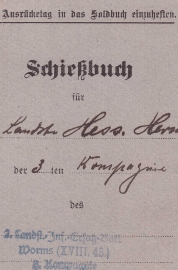 Ausrücketag in das Soldbuch einzuheften.
Schießbuch
für
Landstm Hess. Herm
der 3. ten Kompagnie
des
2. Landst.-Inf.-Ersatz-Batl.
Worms (XVIII. 43.)
2. Kompagnie